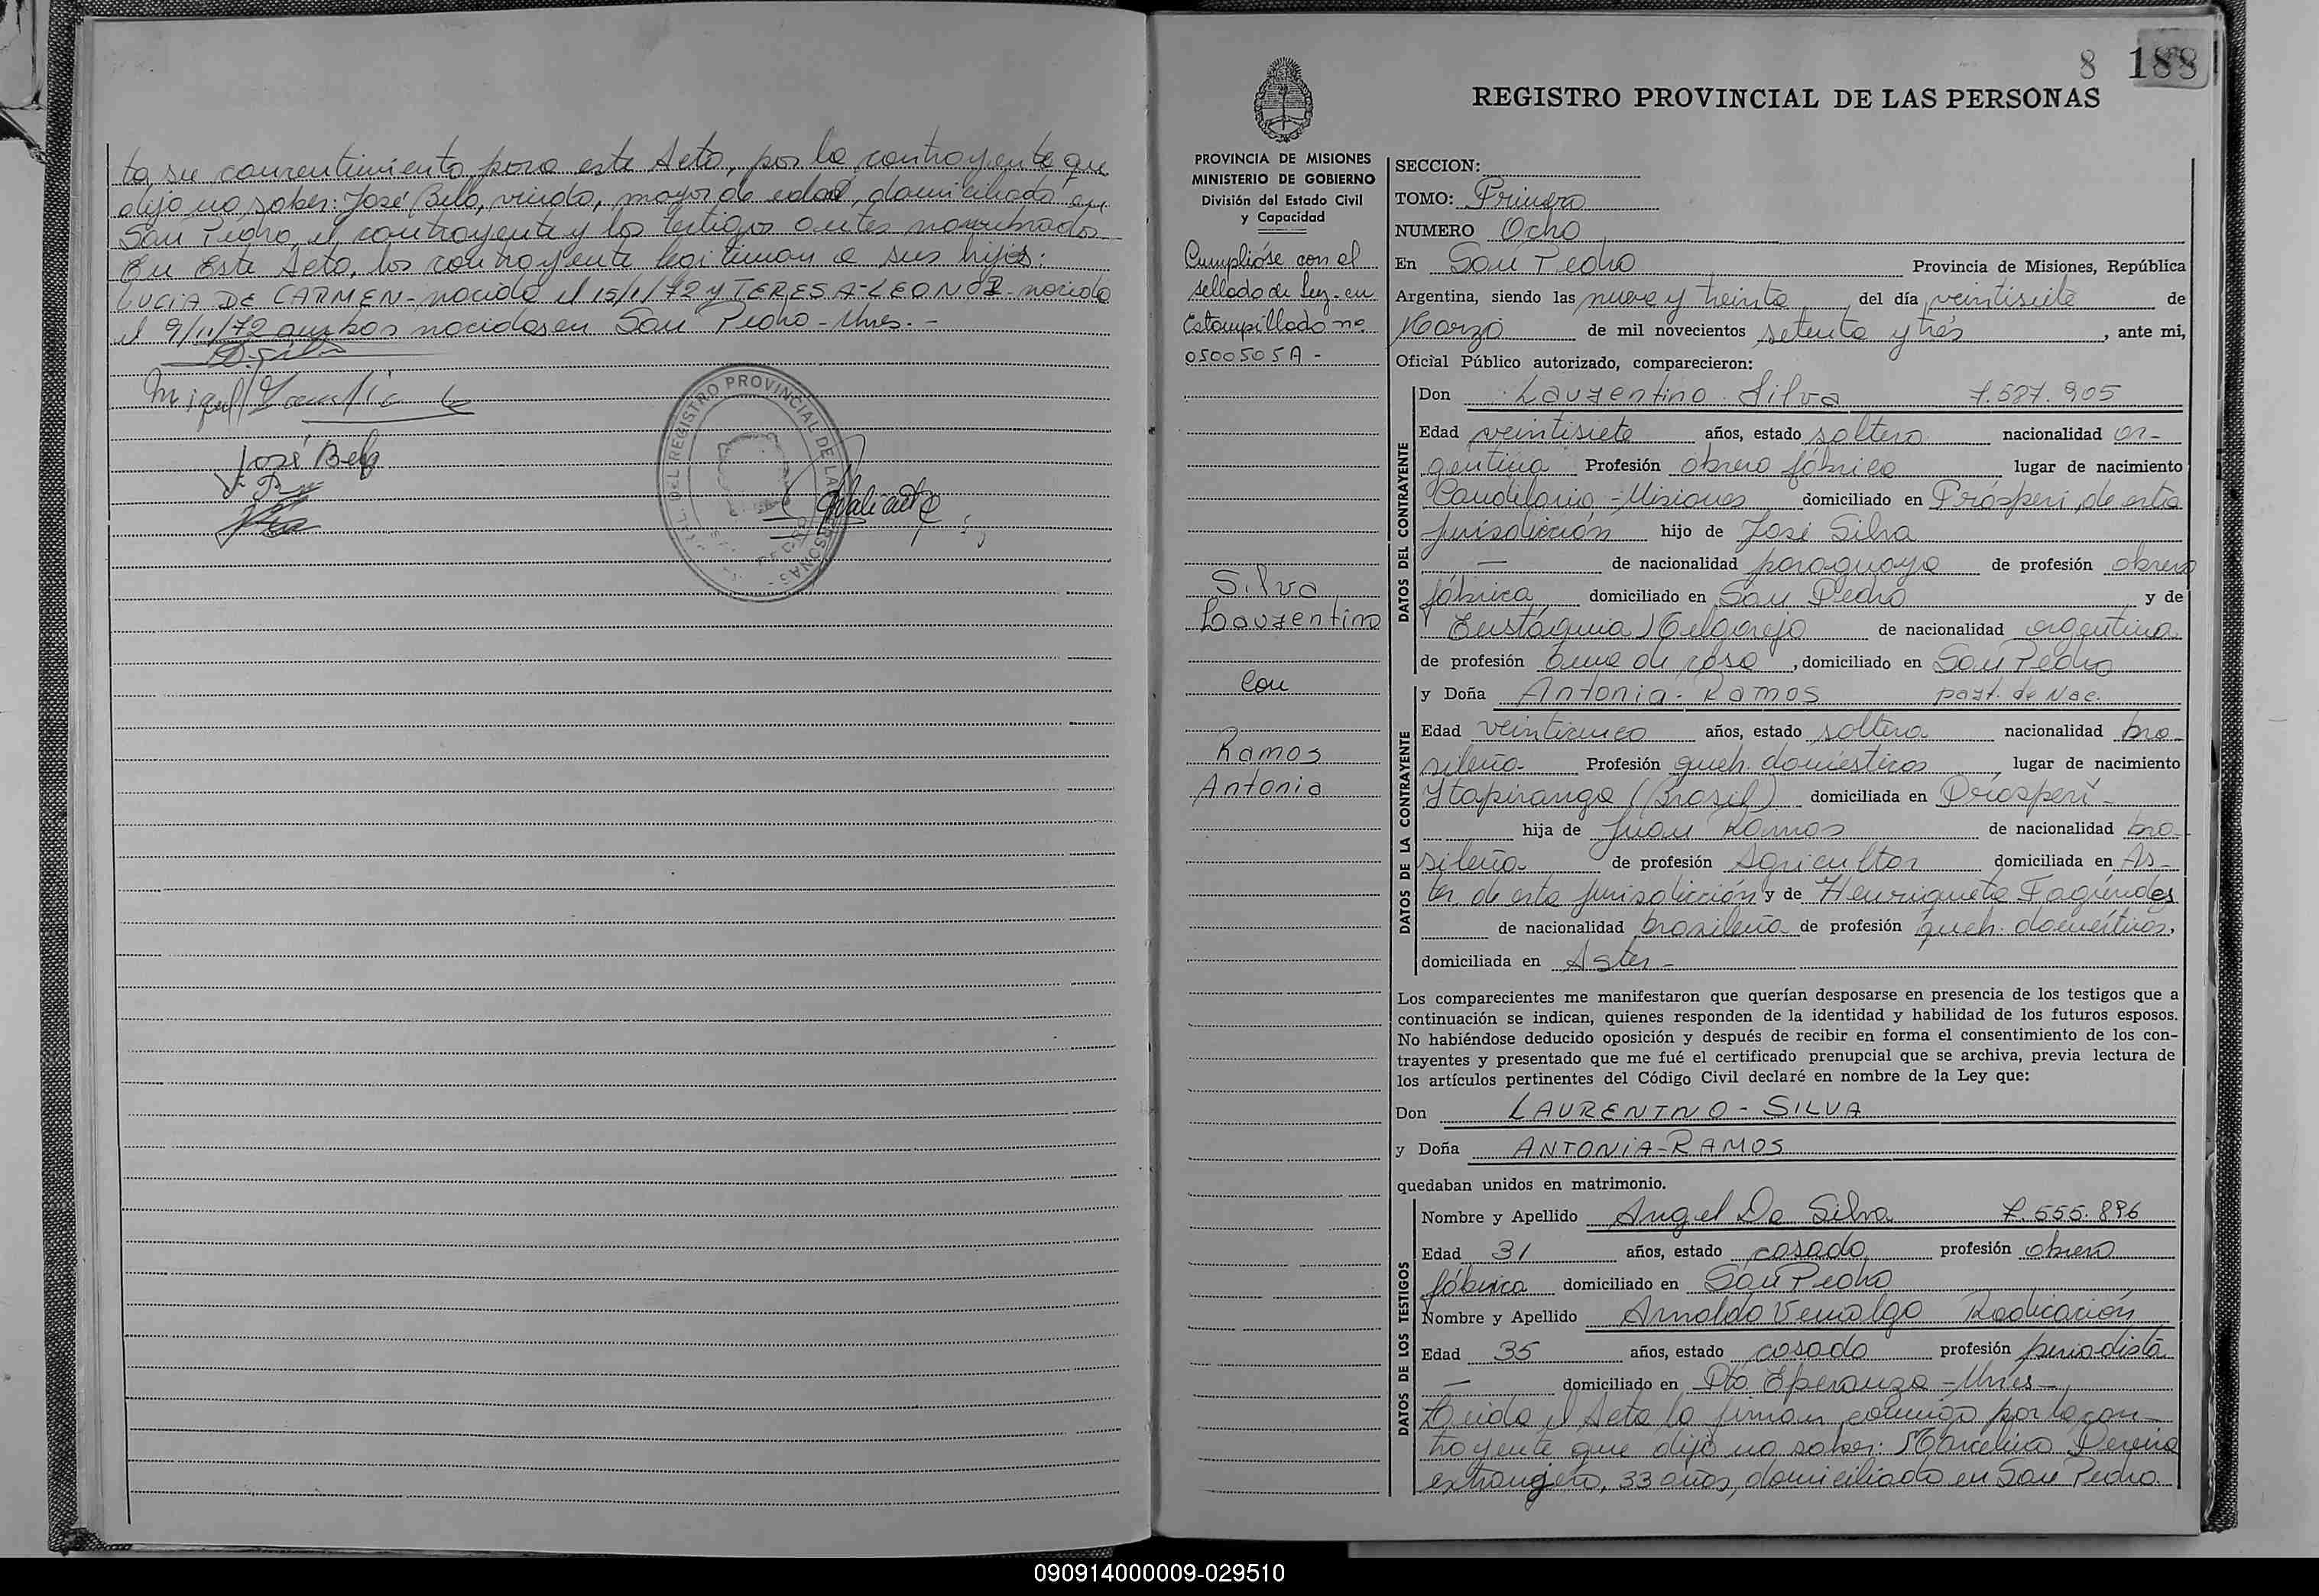 ta, su consentimiento para este Acto, por la contrayente que
dijo no saber: José Belo, viudo, mayor de edad, domiciliado en
San Pedro, el contrayente y los testigos antes nombrados
En Este Acto, los contrayente legitiman a sus hijas:
LUCIA DE CARMEN - nacida el 15/1/72 y TERESA-LEONOR - nacida
el 9/11/72 ambas nacidas en San Pedro - Mnes. -
José Belo
REGISTRO PROVINCIAL DE LAS PERSONAS
8 188
REGISTRO PROVINCIAL DE LAS PERSONAS
PROVINCIA DE MISIONES
MINISTERIO DE GOBIERNO
División del Estado Civil
y Capacidad
Cumplióse con el
sellado de Ley - en
Estampillado no
0500505A -
Silva
Laurentino
Con
Ramos
Antonia
SECCION:
TOMO: Primero
NUMERO Ocho
En San Pedro Provincia de Misiones, República
Argentina, siendo las nueve y treinta del día veintisiete de
Marzo de mil novecientos setenta y tres, ante mi,
Oficial Público autorizado, comparecieron:
DATOS DEL CONTRAYENTE
Don Laurentino Silva 7.587.905
Edad veintisiete años, estado soltero nacionalidad ar-
gentina Profesión obrero fábrica lugar de nacimiento
Candelaria - Misiones domiciliado en Prósperi, de esta
jurisdicción hijo de José Silva
— de nacionalidad paraguaya de profesión obrero
fábrica domiciliado en San Pedro y de
Eustáquia Melgarejo de nacionalidad argentina
de profesión ama de casa, domiciliado en San Pedro
DATOS DE LA CONTRAYENTE
y Doña Antonia - Ramos part. de Nac.
Edad veinticinco años, estado soltera nacionalidad bra-
sileña Profesión queh. domésticos, lugar de nacimiento
Itapiranga (Brasil) domiciliada en Prósperi -
hija de Juan Ramos de nacionalidad bra-
sileña de profesión Agricultor domiciliada en As-
ter, de esta jurisdicción y de Henriqueta Fagúndes
de nacionalidad brasileña de profesión queh. domésticos,
domiciliada en Aster -
Los comparecientes me manifestaron que querían desposarse en presencia de los testigos que a
continuación se indican, quienes responden de la identidad y habilidad de los futuros esposos.
No habiéndose deducido oposición y después de recibir en forma el consentimiento de los con-
trayentes y presentado que me fué el certificado prenupcial que se archiva, previa lectura de
los artículos pertinentes del Código Civil declaré en nombre de la Ley que:
Don LAURENTNO - SILVA
y Doña ANTONIA - RAMOS
quedaban unidos en matrimonio.
DATOS DE LOS TESTIGOS
Nombre y Apellido Angel Da Silva 7.555.896
Edad 31 años, estado casado profesión obrero
fábrica domiciliado en San Pedro
Nombre y Apellido Arnoldo Venialgo Radicación
Edad 35 años, estado casado profesión periodista
— domiciliado en Pto Esperanza - Mnes -
Leida el Acta la firman conmigo por la con-
trayente que dijo no saber: Marcelino Pereira
extranjero, 33 años, domiciliado en San Pedro.
090914000009-029510